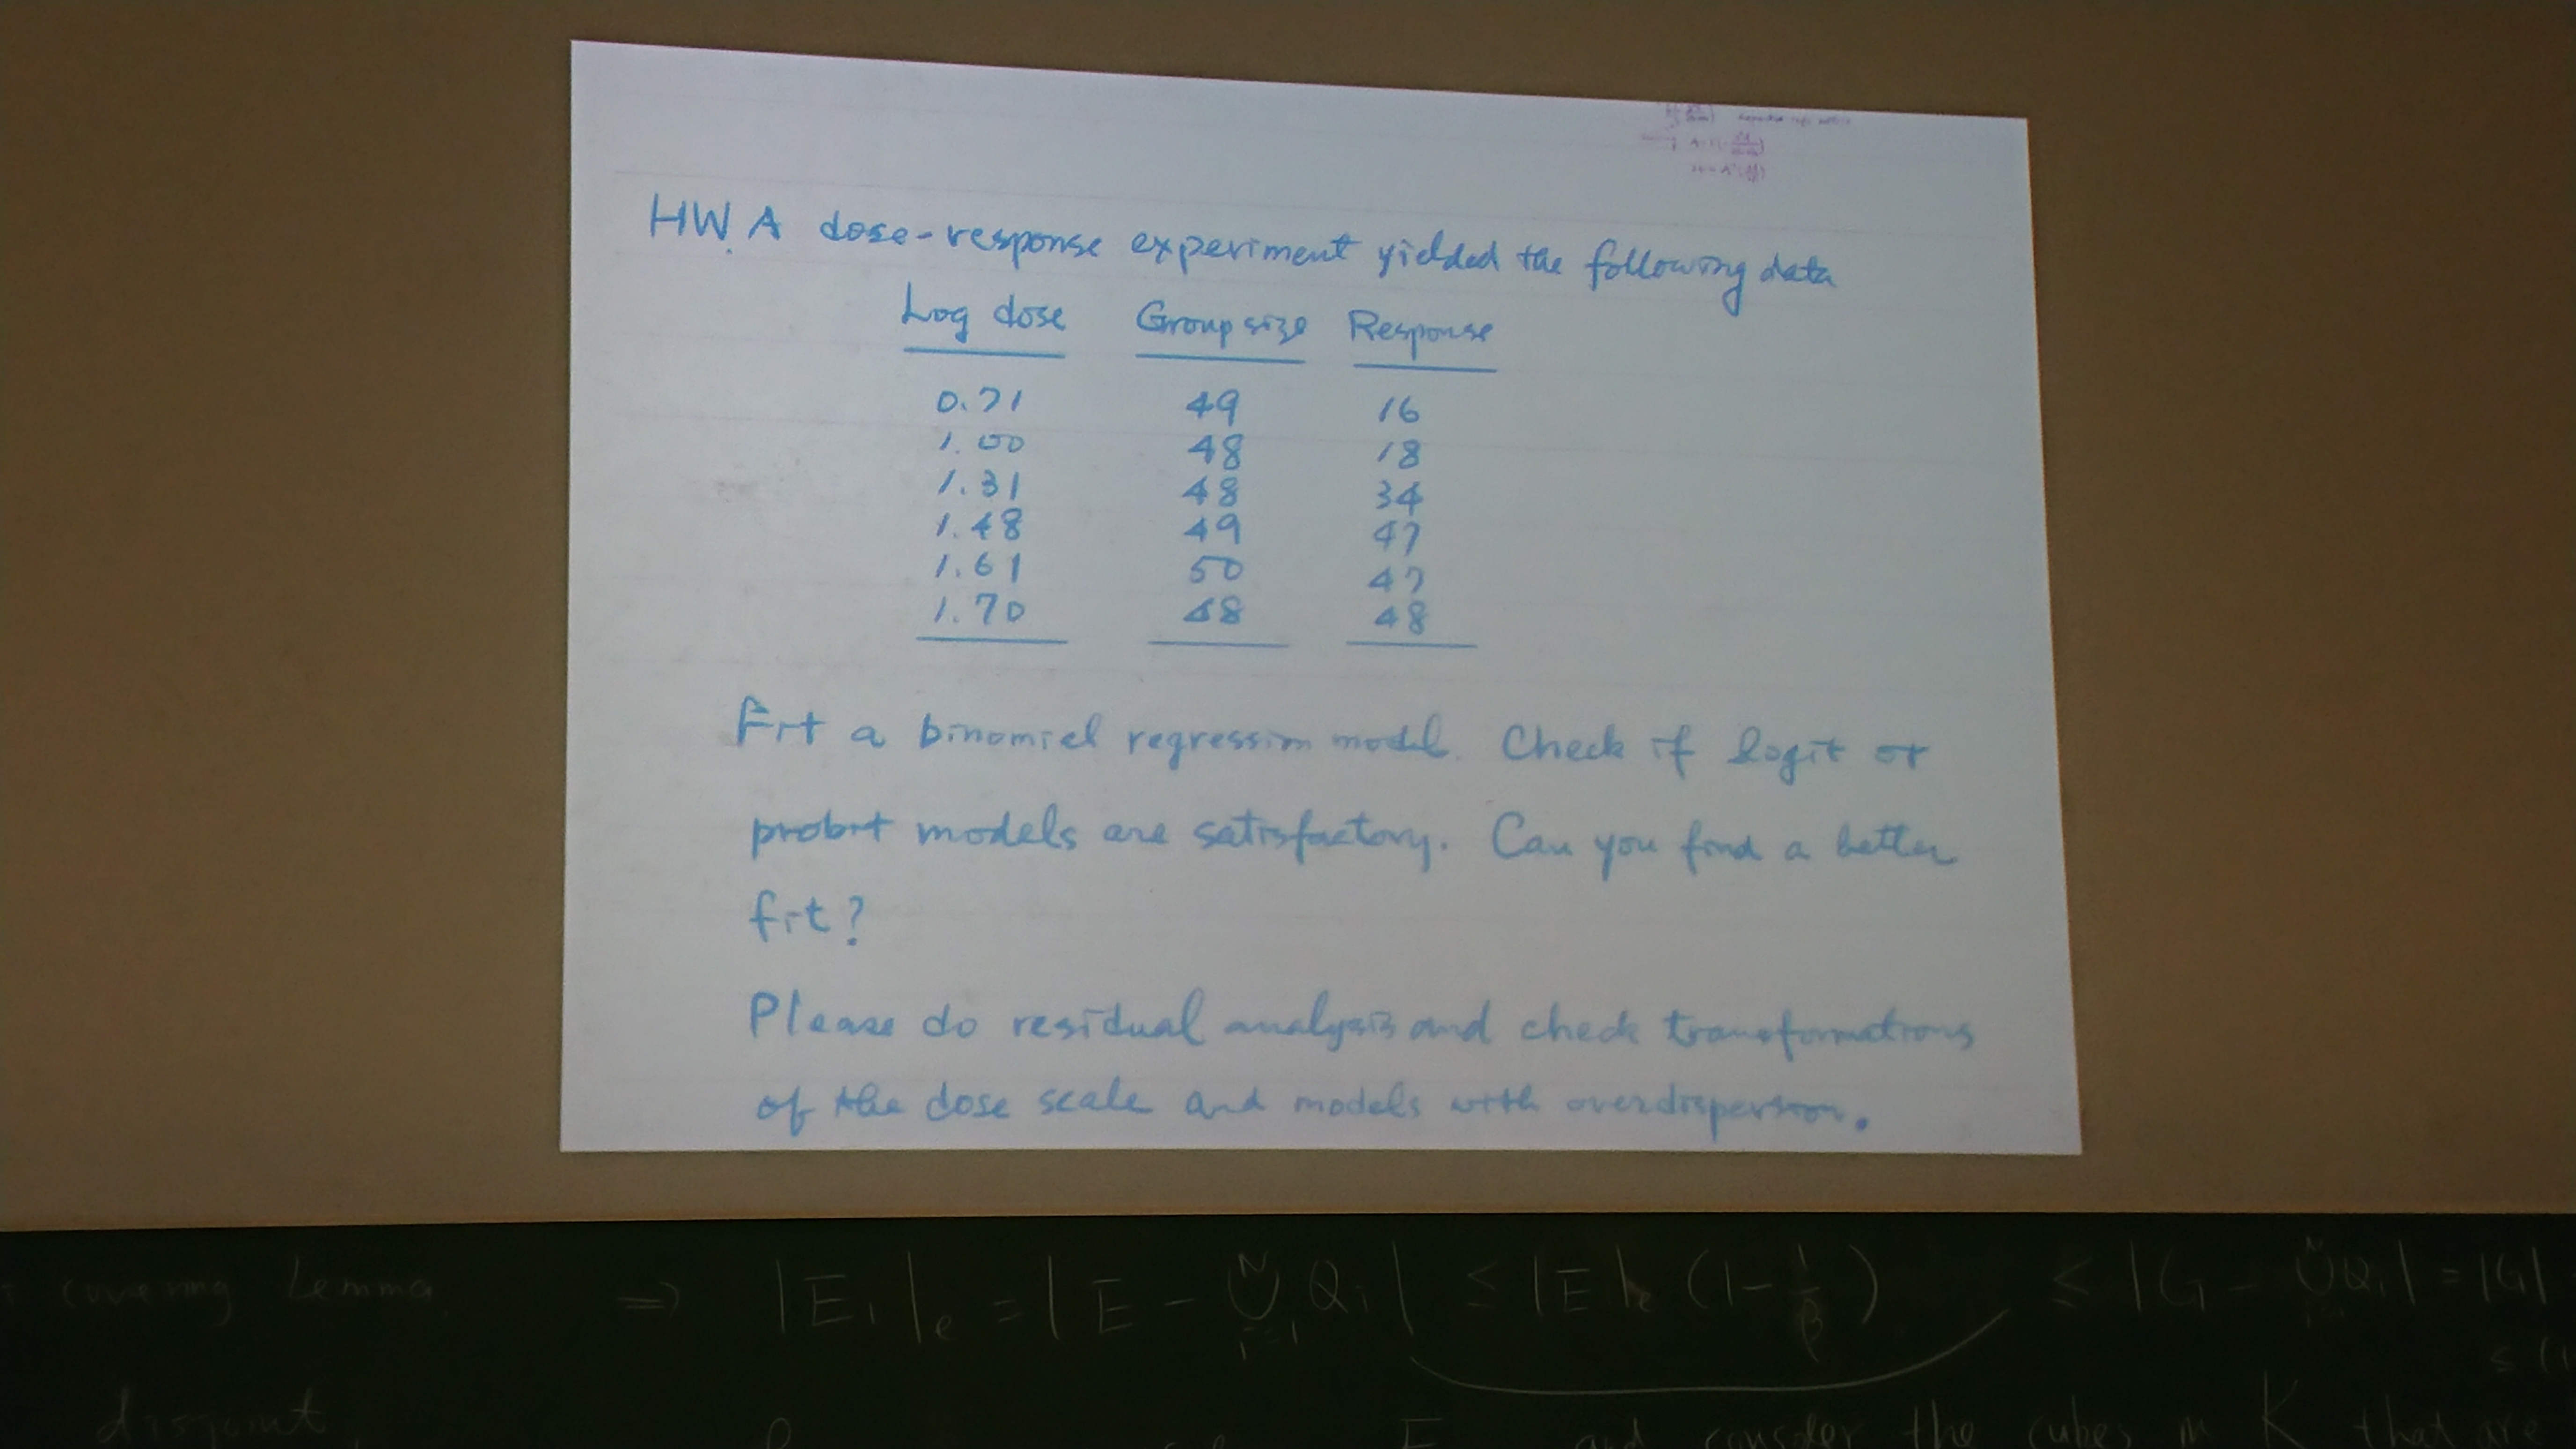 HW. A dose-response experiment yielded the following data
Log dose Group size Response
0.71 49 16
1.00 48 18
1.31 48 34
1.48 49 47
1.61 50 47
1.70 48 48
Fit a binomial regression model. Check if logit or
probit models are satisfactory. Can you find a better
fit?
Please do residual analysis and check transformations
of the dose scale and models with overdispersion.
covering Lemma
⇒ |E₁|ₑ = |E - ⋃ᵢ₌₁ᴺ Qᵢ| ≤ |E|ₑ (1 - 1/β) ≤ |G - ⋃Qᵢ| = |G|
disjoint
and consider the cubes in K that are